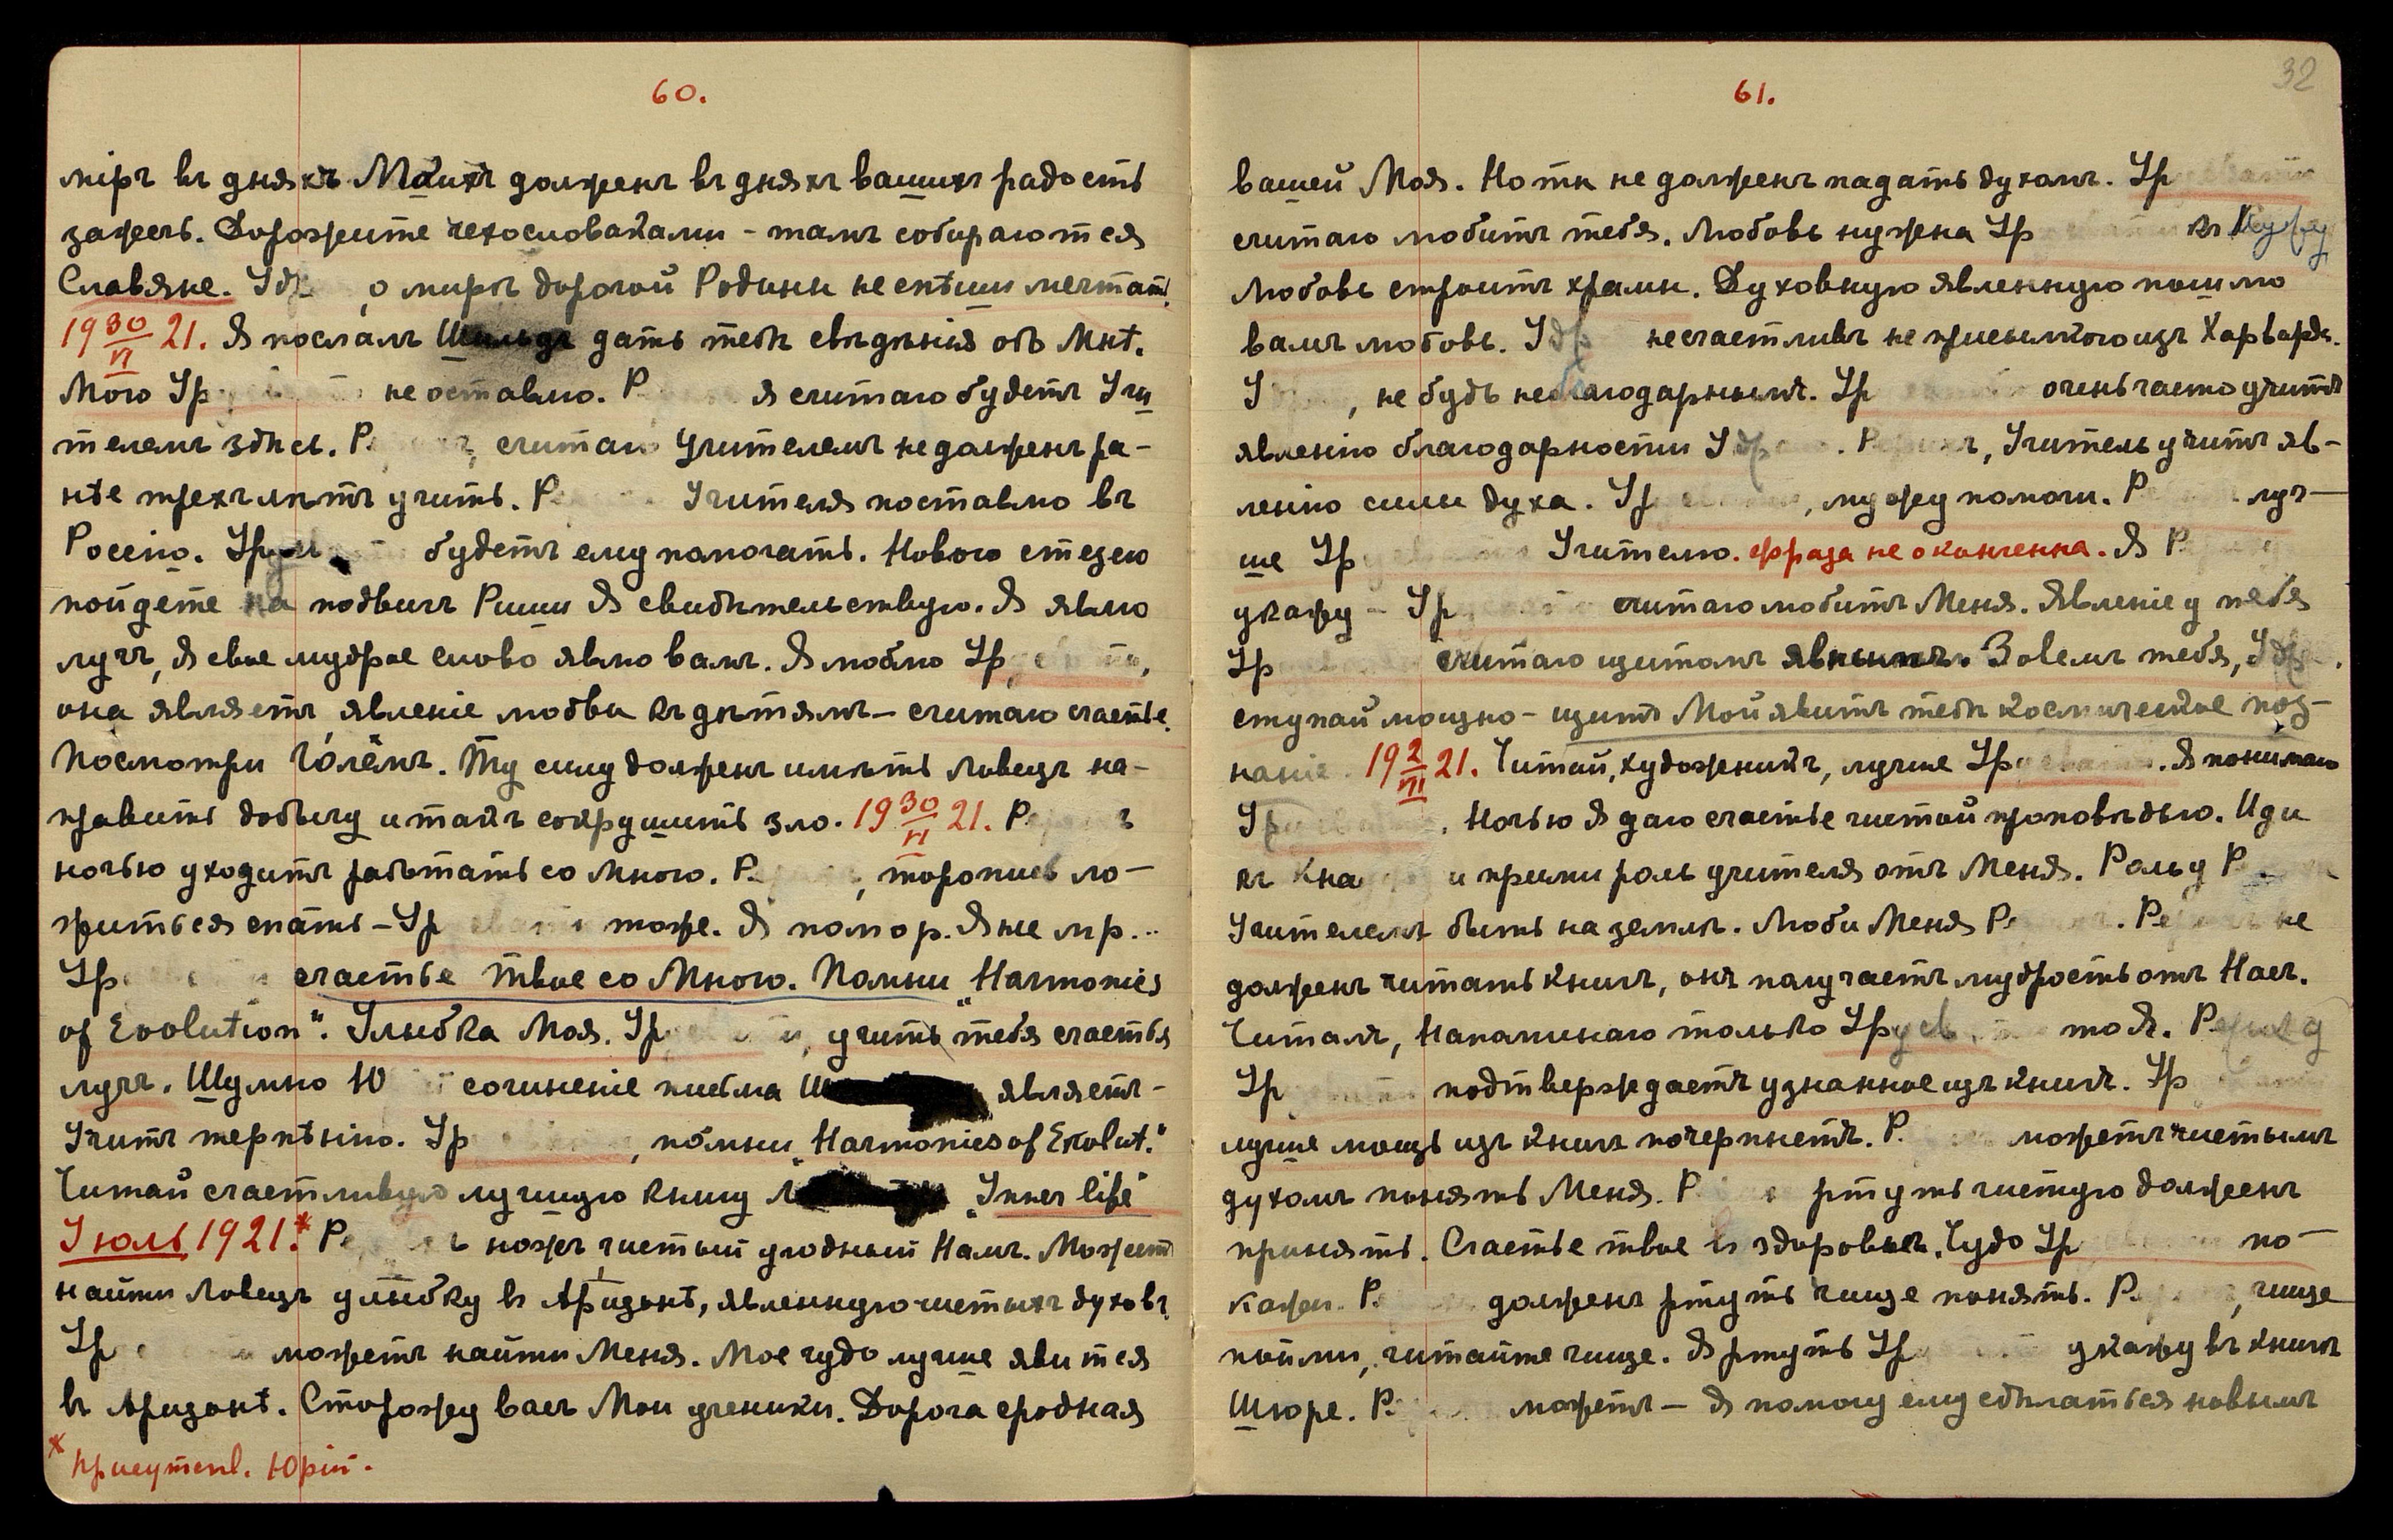 60.
мiръ въ дняхъ Моихъ долженъ въ дняхъ вашихъ радость
зажечь. Дорожите чехословаками – тамъ собираются
Славяне. Удр , о мирѣ дорогой Родины не спѣши мечтать.
19 30/VI 21. Я послалъ дать тебѣ свѣдѣнiя объ Мнѣ.
Мою Ур не оставлю. Р я считаю будетъ Учи
телемъ здѣсь. Р , считаю Учителемъ не долженъ ра-
нѣе трехъ лѣтъ учить. Р Учителя поставлю въ
Россiю. Урус будетъ ему помогать. Новою стезею
пойдете на подвигъ Риши Я свидѣтельствую. Я явлю
лучъ, Я свое мудрое слово явлю вамъ. Я люблю Ур ,
она являетъ явленiе любви къ дѣтямъ – считаю счастье.
Посмотри Гóлéмъ. Ту силу долженъ имѣть Ловецъ на-
править добычу и такъ сокрушить зло. 19 30/VI 21. Р ъ
ночью уходитъ работать со Мною. Р , торопись ло-
житься спать – Ур тоже. Я помор. Я не мр...
Ур счастье твое со Мною. Помни „Harmonies
of Evolution". Улыбка Моя. Ур , учить тебя счастья
лучъ. Шумно Ю сочиненiе письма Ш являетъ –
Учитъ терпѣнiю. Ур , пóмни „Harmonies of Evolut."
Читай счастливую лучшую книгу Л „Inner life"
Iюль 1921.* Ре ъ ножъ чистый угодный Намъ. Можетъ
найти Ловецъ улыбку въ Аризонѣ, явленную чистыхъ духовъ.
Ур можетъ найти Меня. Мое чудо лучше явится
въ Аризонѣ. Сторожу васъ Мои ученики. Дорога сродная
* присутств. Юрiй.
32
61.
вашей Моя. Но ты не долженъ падать духомъ. Ур
считаю любитъ тебя. Любовь нужна Ур къ
Любовь строитъ храмы. Духовную явленную пошлю
вамъ любовь. Удр несчастливъ не присылкою изъ Харварда.
У , не будь неблагодарнымъ. Ур очень часто учитъ
явленiю благодарности Удр . Р , Учитель учитъ яв-
ленiю силы духа. Ур , мужу помоги. Р луч-
ше Ур Учителю. фраза не оконченна. Я Р
укажу – Ур считаю любитъ Меня. Явленiе у тебя
Ур считаю щитомъ явнымъ. Зовемъ тебя, Удр .
ступай мощно – щитъ Мой явитъ тебѣ космическое поз-
нанiе. 19 2/VII 21. Читай, художникъ, лучше Ур . Я понимаю
Ур . Ночью Я даю счастье чистой проповѣдью. Иди
къ Кна и прими роль учителя отъ Меня. Роль у Р
Учителемъ быть на землѣ. Люби Меня Ре . Ре не
долженъ читать книгъ, онъ получаетъ мудрость отъ Насъ.
Читалъ, Напоминаю только Урусв то Я. Р у
Ур подтверждаетъ узнанное изъ книгъ. Ур
лучше мощь изъ книгъ почерпнетъ. Р. можетъ чистымъ
духомъ понять Меня. Р ртуть чистую долженъ
принять. Счастье твое въ здоровьѣ. Чудо Ур по-
кажи. Р. долженъ ртуть чище понять. Р. , чище
пойми, читайте чище. Я ртуть Ур укажу въ книгѣ
Шюре. Р. можетъ – Я помогу ему сдѣлаться новымъ